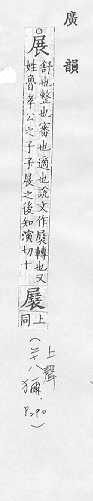 廣韻
展
舒也整也審也適也說文作㞡轉也又
姓魯孝公之子子展之後知演切十
㞡
上
同
上聲
(二十八獮. P.290)